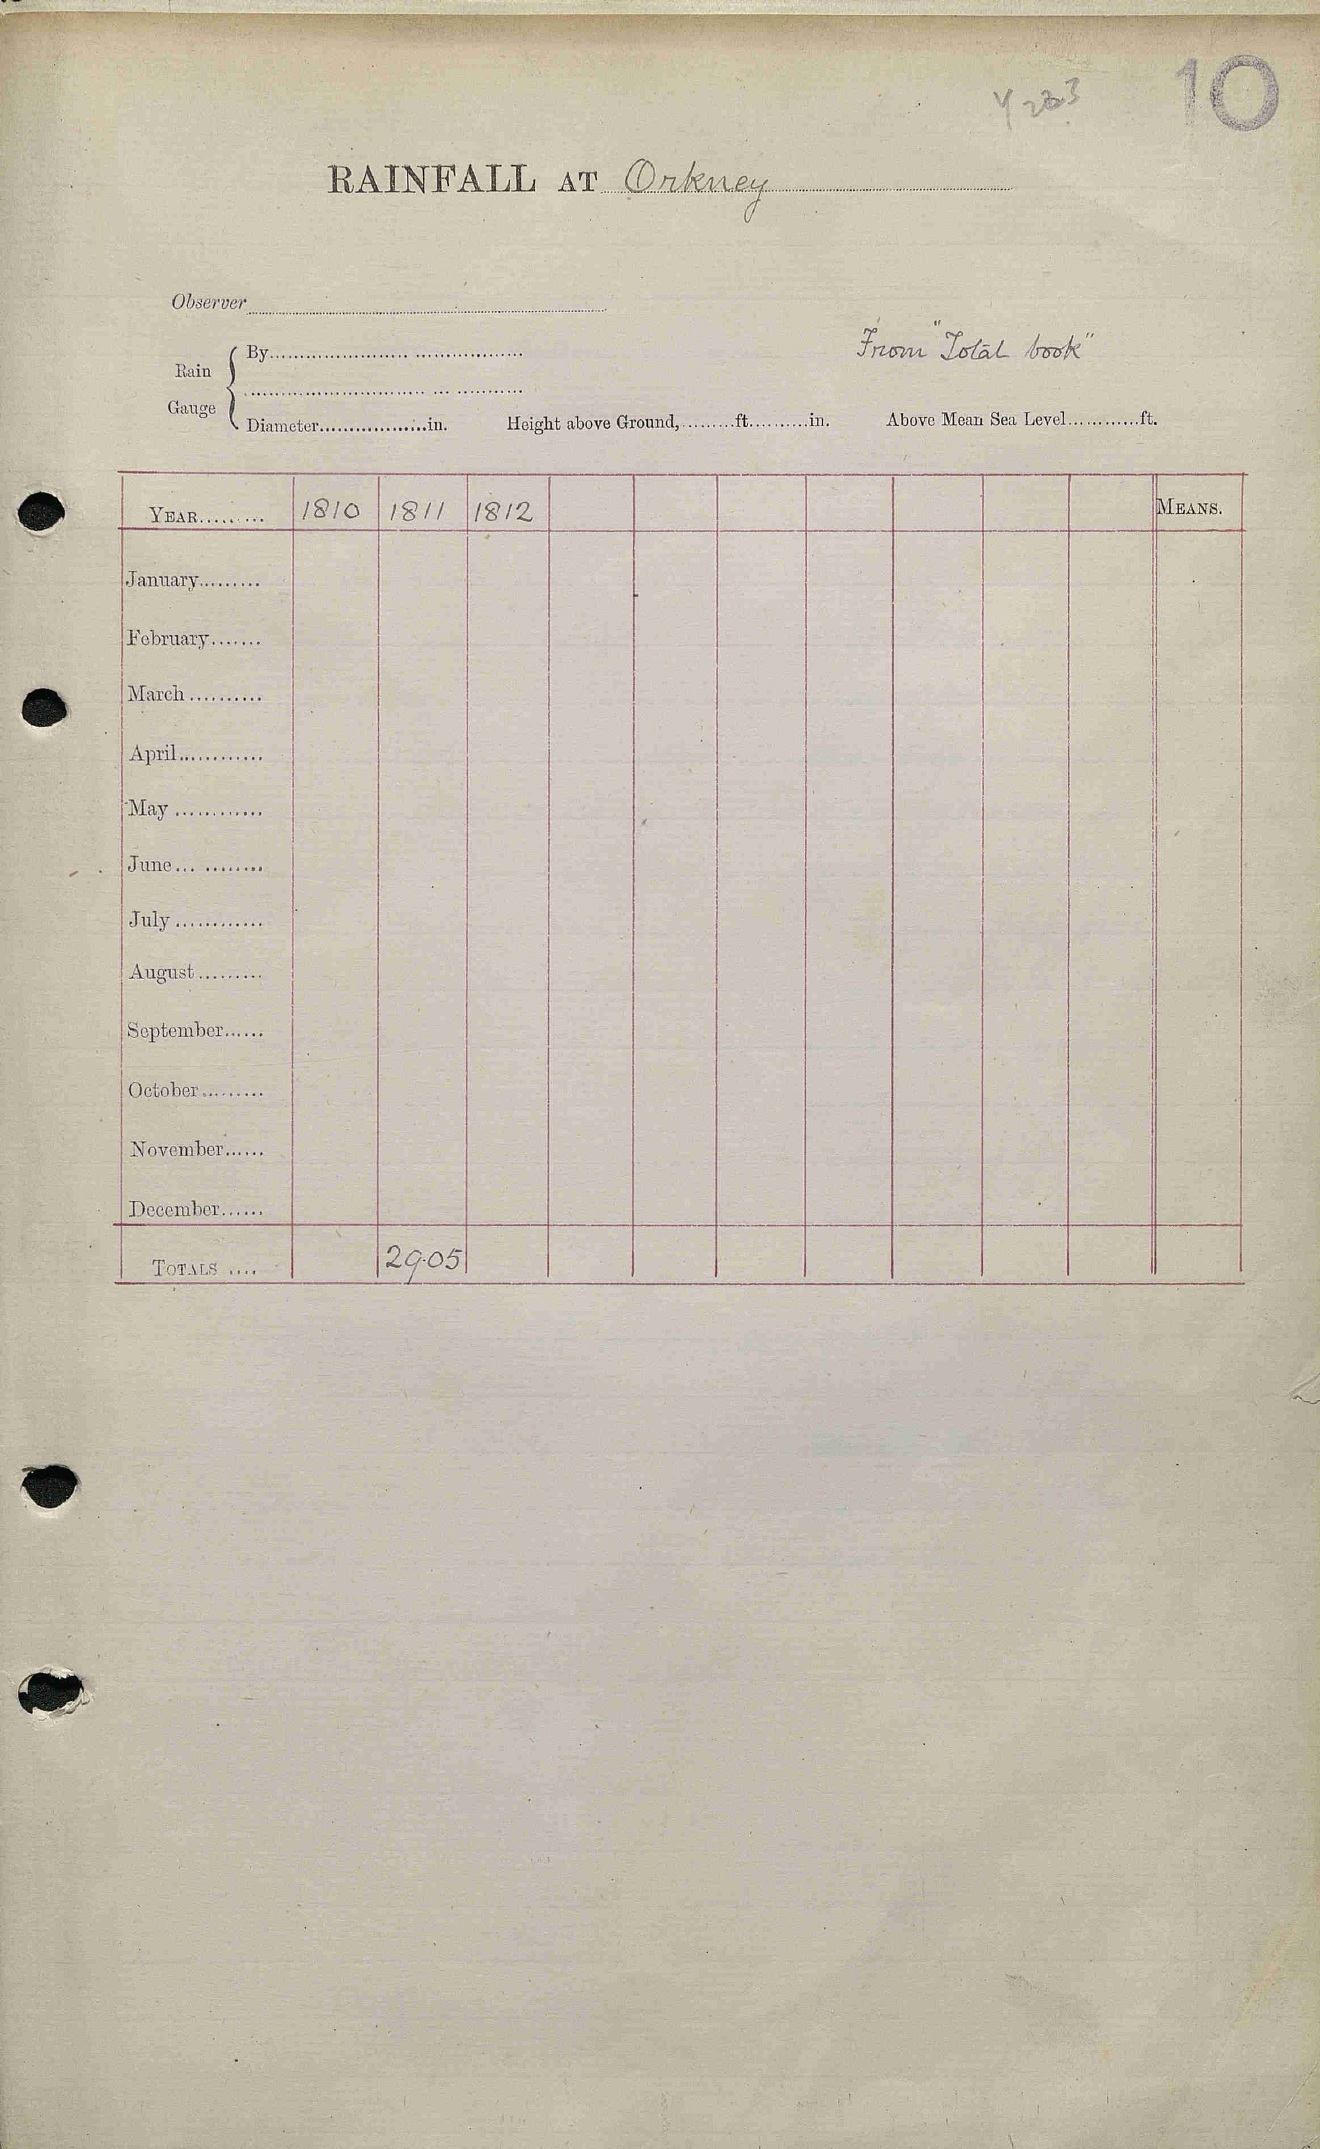 10
RAINFALL AT Orkney
Observer
From "Total book"
Rain Gauge
By
Diameter in. Height above Ground, ft. in. Above Mean Sea Level ft.
YEAR 1810 1811 1812 MEANS.
January
February
March
April
May
June
July
August
September
October
November
December
TOTALS 29.05